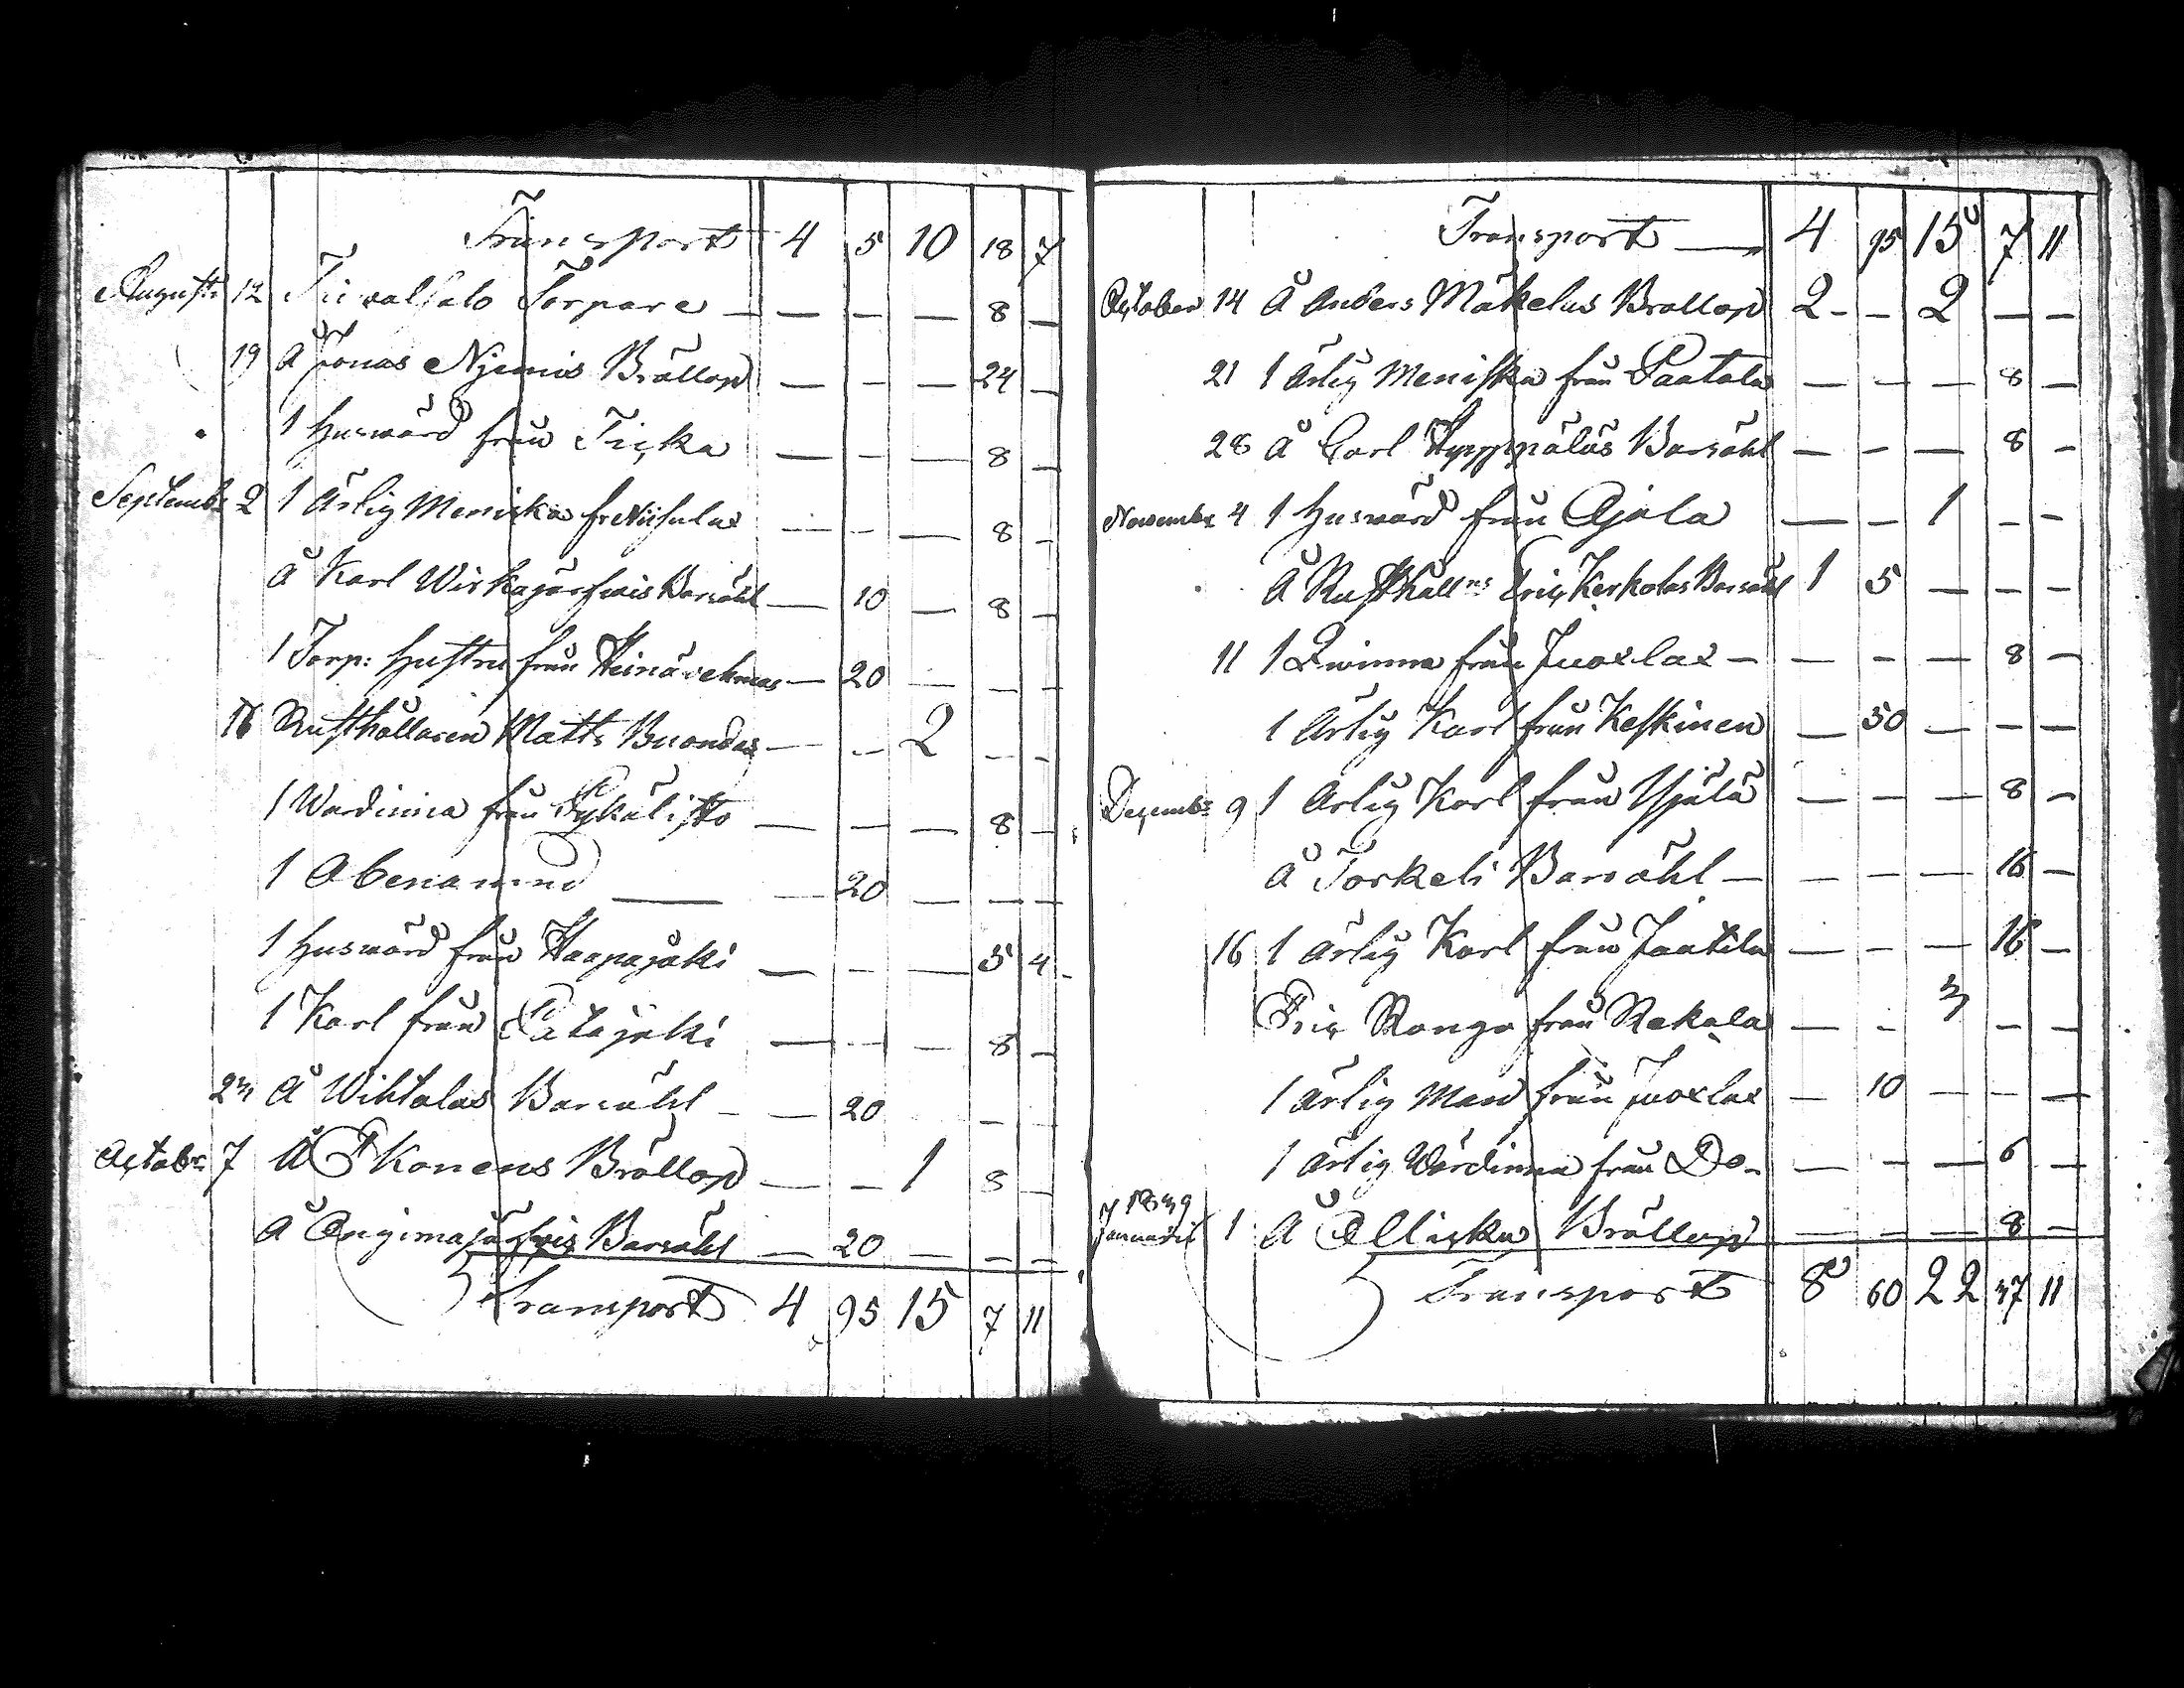 Transport 4 5 10 18 7
Augusti 12 Torpare — — — — 8 —
19 Å Jonas Njemis Bröllop — — — 24 —
1 Huswärd från Ticka — — — 8 —
Septembr 2 1 Ärlig Meniska fr Niisulas — — — 8 —
Å Karl Wirkajärfwis Barsöhl — 10 — 8 —
1 Torp: Hustru från — 20 — — —
16 Rusthållaren Matts Buondas — — 2 — —
1 Wärdinna från Pykälistö — — — 8 —
1 Obenämnd — — 20 — — —
1 Huswärd från Haapajoki — — — 5 4
1 Karl från Patajoki — — — 8 —
23 Å Wihtalas Barsöhl — — 20 — —
Octobr 7 Å Ikonens Bröllop — — 1 8 —
Å Angimajärfwis Barsöhl — 20 — — —
Transport 4 95 15 7 11
Transport — 4 95 15 7 11
October 14 Å Anders Mäkelas Bröllop 2 - 2 — —
21 1 Ärlig Meniska från Paatala — — — 8 —
28 Å Carl Hyppäläs Barsöhl — — — 8 —
Novembr 4 1 Huswärd från Ajala — — 1 — —
Å Rusthålls Eric Kerkolas Barsöhl 1 5 — — —
11 1 Qwinna från Juoxlax — — — — 8 —
1 Ärlig Karl från Keskinen — 50 — — —
Decembr 9 1 Ärlig Karl från — — — 8 —
Å Torkeli Barsöhl — — — — 16 —
16 1 Ärlig Karl från Jaatila — — — 16 —
Eric Ronga från Rekola — - 3 — —
1 Ärlig Man från Juoxlax — 10 — — —
1 Ärlig Wärdinna från Do — — — 6 —
1839
Januarii 1 Å Ollicka Bröllop — — — 8 —
Transport 8 60 22 37 11